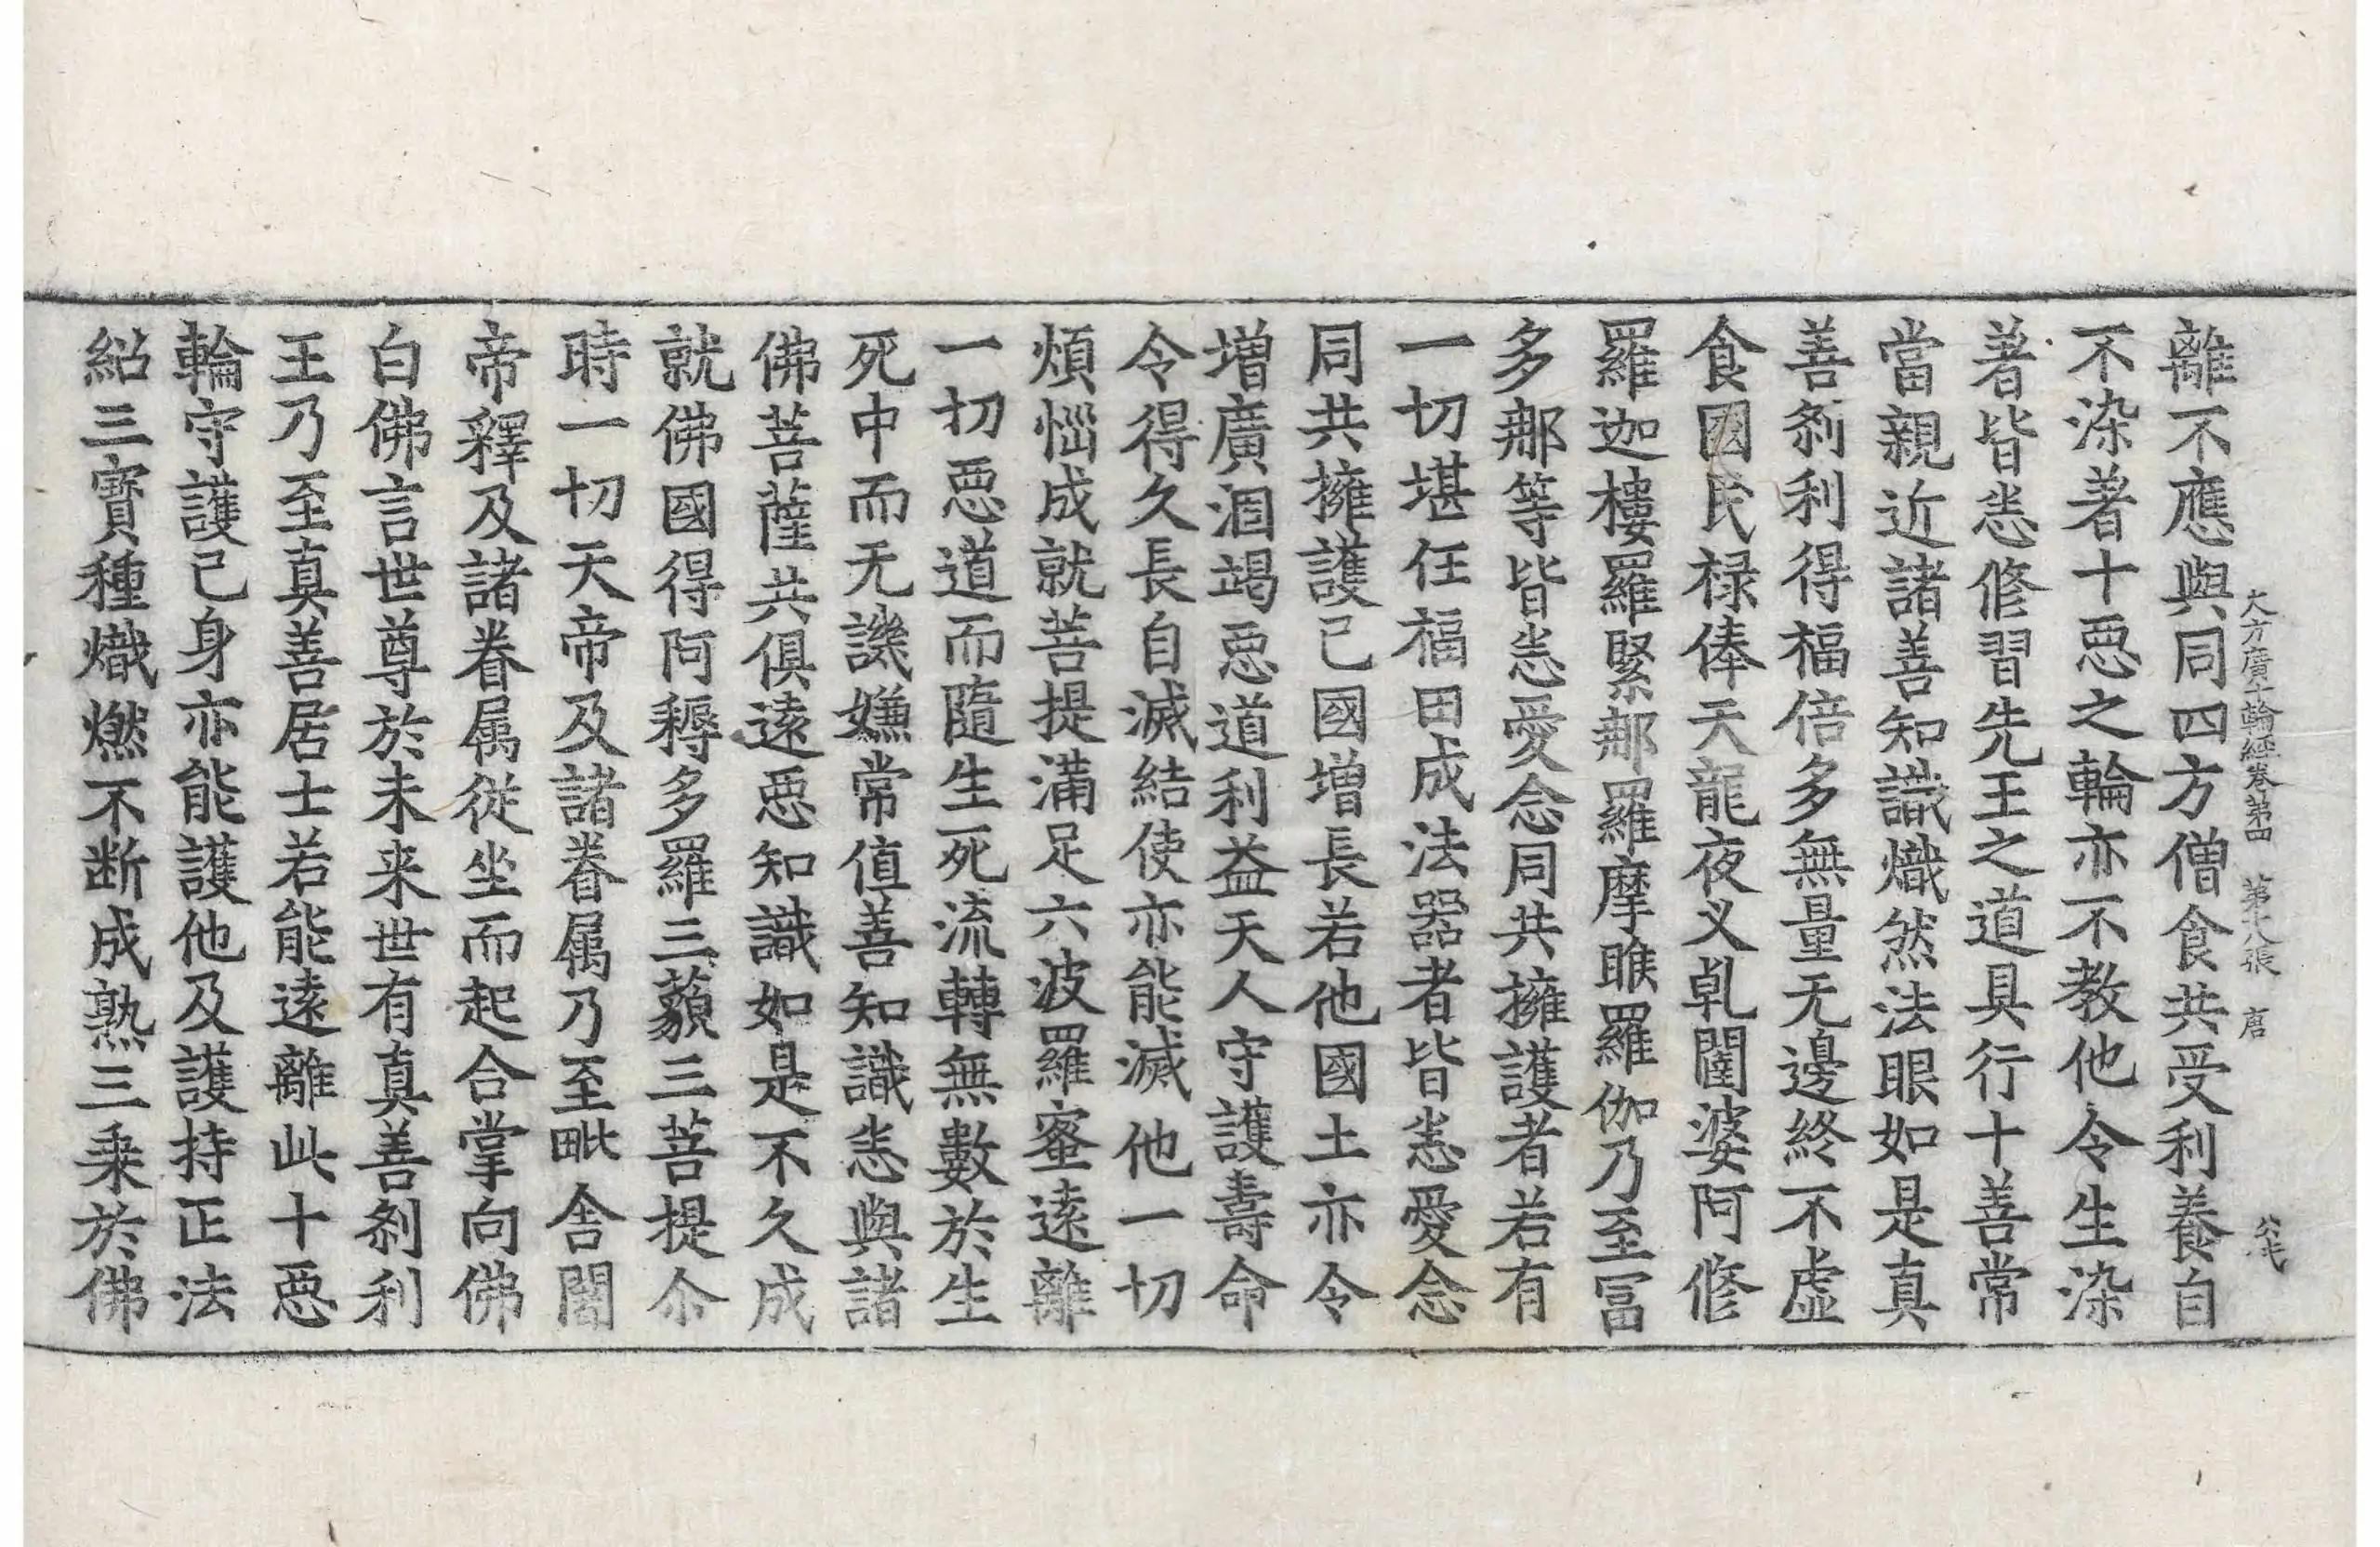 大方廣十輪經卷第四 第十八張 唐
離不應與同四方僧食共受利養自
不染著十惡之輪亦不教他令生染
著皆悉修習先王之道具行十善常
當親近諸善知識熾然法眼如是真
善剎利得福倍多無量无邊終不虛
食國民禄俸天龍夜义乹闥婆阿修
羅迦樓羅緊那羅摩睺羅伽乃至冨
多那等皆悉愛念同共擁護者若有
一切堪任福田成法器者皆悉愛念
同共擁護己國增長若他國土亦令
增廣涸竭惡道利益天人守護壽命
令得久長自滅結使亦能滅他一切
煩惱成就菩提滿足六波羅蜜遠離
一切惡道而隨生死流轉無數於生
死中而无譏嫌常值善知識悉與諸
佛菩薩共俱遠惡知識如是不久成
就佛國得阿耨多羅三藐三菩提尒
時一切天帝及諸眷属乃至毗舍闍
帝釋及諸眷属從坐而起合掌向佛
白佛言世尊於未来世有真善剎利
王乃至真善居士若能遠離此十惡
輪守護己身亦能護他及護持正法
紹三寳種熾燃不断成熟三乗於佛